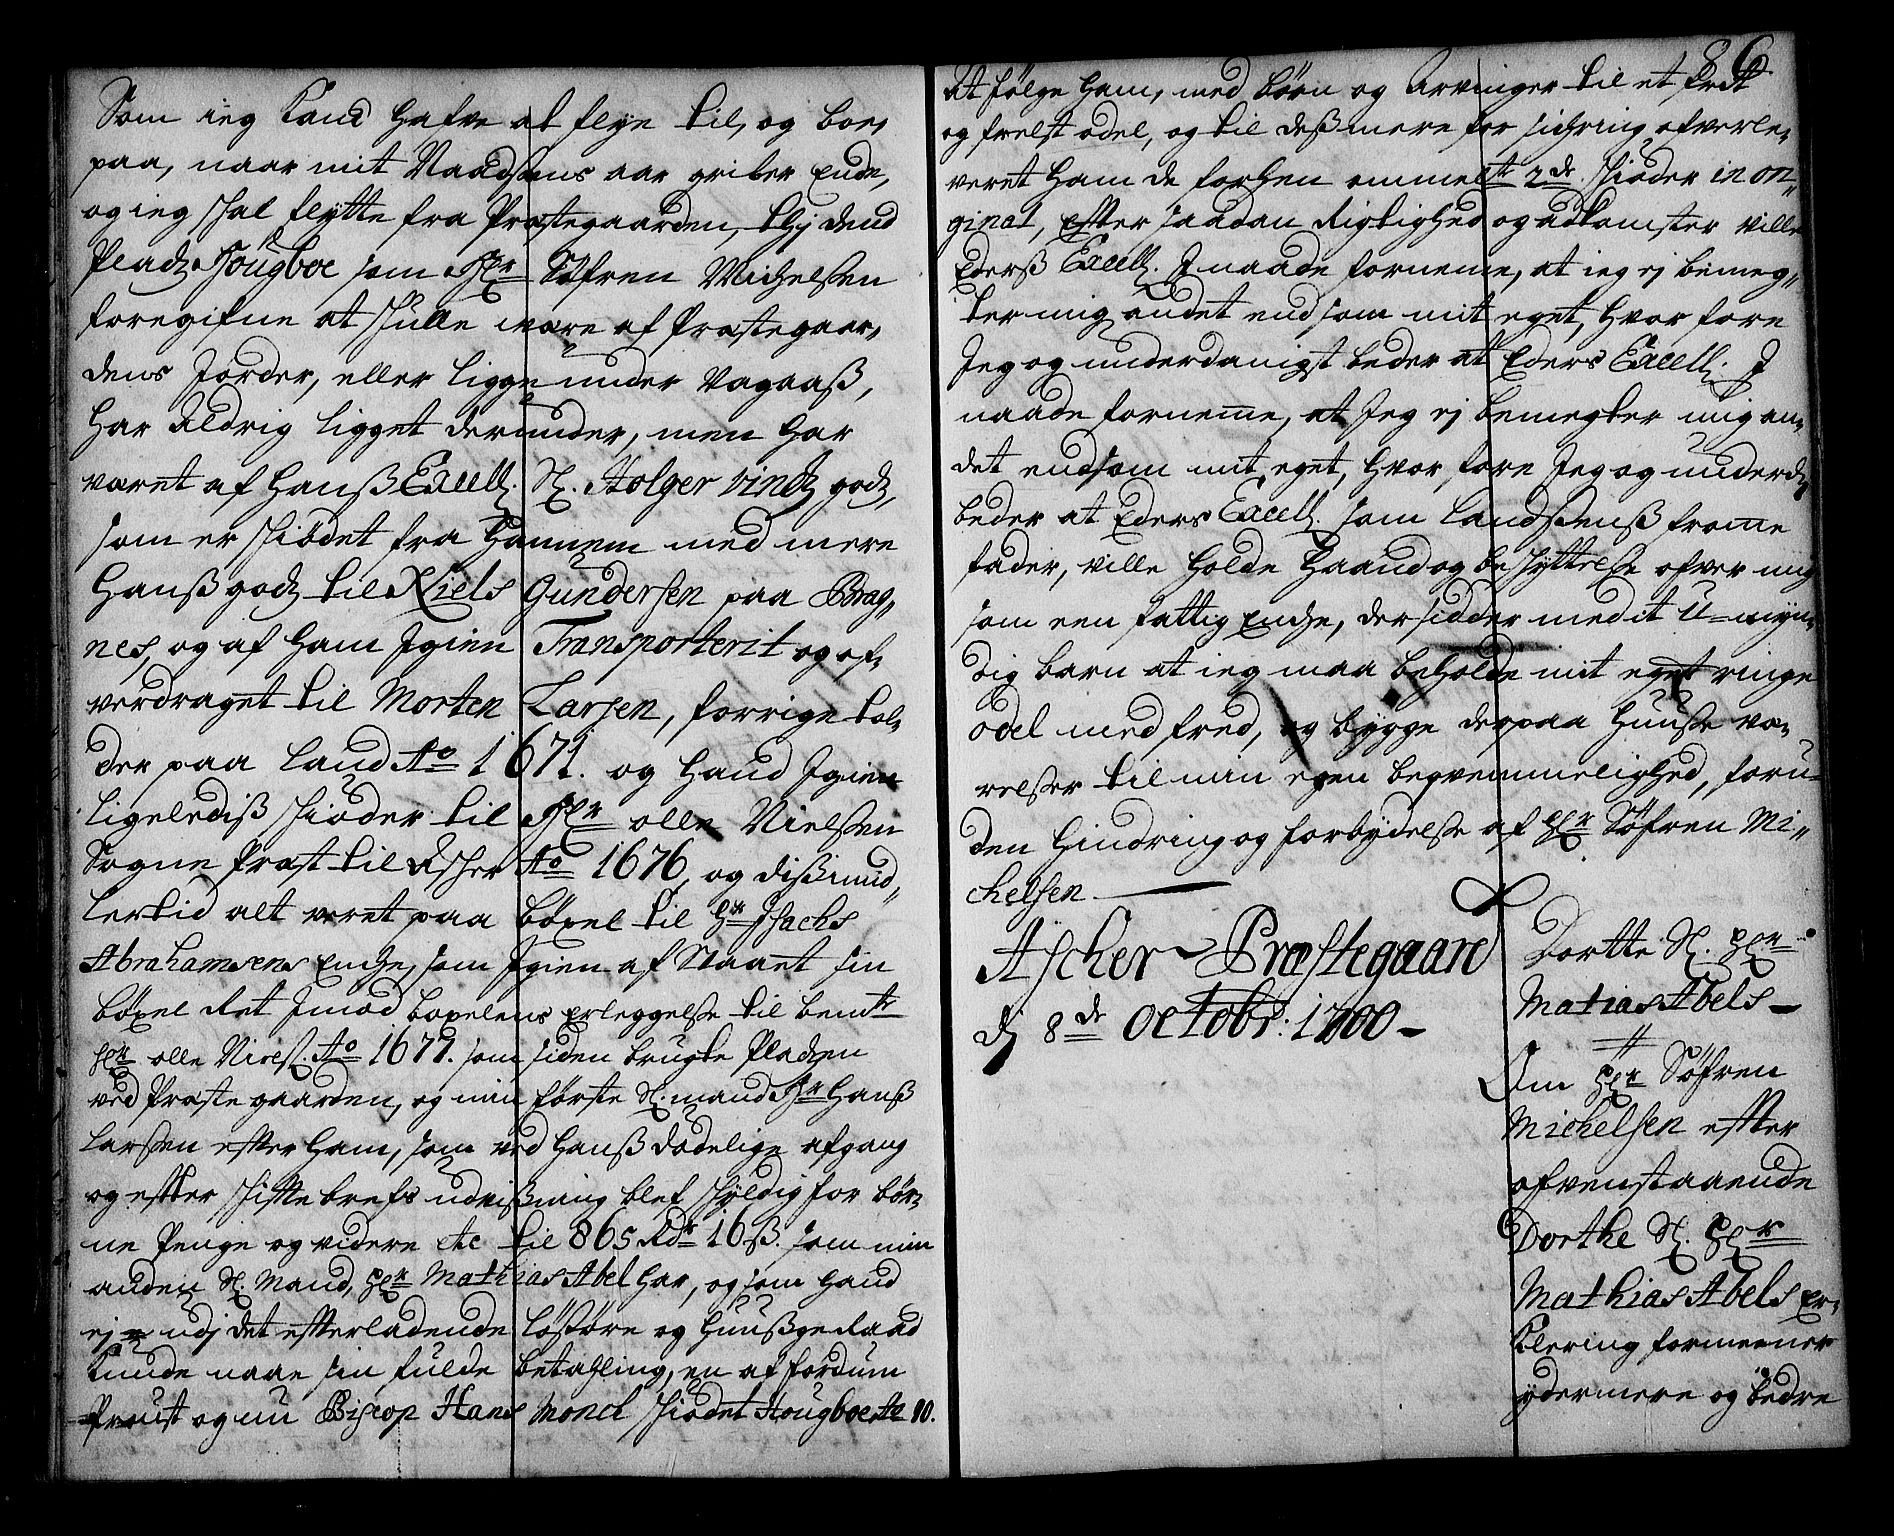 Som ieg kand hafve at flye til, og boe
paa, naar mit Naadsens aar griber Ende,
og ieg skal flytte fra Præstegaarden, thj dend
Pladz Hougboe som Hr Søfren Michelsen
foregifne at skulle være af Præstegaar,
dens Jorder, eller ligge under Vagaaß,
har Aldrig ligget derunder, men har
været af Hanß Excell. Sl. Holger Vindz godz,
som er skiødet fra Hannem med mere
Hanß godz til Niels Gundersen paa Brag„
nes, og af ham Jgien Transporterit og of„
verdraget til Morten Larsen, forrige tol„
der paa Land Ao 1671. og Hand Jgien
ligelediß skiøder til Hr olle Nielsen
Sogne Præst til Ascher Ao 1676, og dißimid„
lertid alt været paa bøxel til Hr Jsachs
Abrahamsens Enche, som Jgien afstaaet sin
bøxel Ret Jmod boxelens erleggelse til bemte
Hr olle Niels. Ao 1677. som siden brugte Pladzen
ved Præstegaarden, og min første Sl. mand Hr Hanß
Larsen efter ham, som ved Hanß dødelige afgang
og efter skiftebrefs udvißning blef skyldig for bør„
ne Penge og videre etc til 865 Rdr 16 ß. som min
anden Sl. Mand, Hr Mathias Abel har, og som hand
ej udj det efterladende løsøre og Huußgeraad
kunde naae sin fulde betahling, en af fordum
Proust og nu Biscop Hans Monch skiødet Hougboe Ao 80.
86
At følge ham, med børn og Arvinger til et frit
og frelst odel, og til deß mere forsichring ofverle„
veret ham de forhen ommelte 2de skiøder in ori„
ginal, efter saadan Rigtighed og adkomster ville
Ederß Excell. J naade forneme, at ieg ej bemeg„
ter mig andet end som mit eget, hvor fore
Jeg og underdanigst beder at Eders Excell. J
naade forneme, at Jeg ej bemegter mig an„
det end som mit eget, hvor fore Jeg og underd.
beder at Eders Excell. som Landsenß frome
fader, ville holde haand og beskyttelse ofver mig
som een fattig Enche, der sidder med it U-myn„
dig barn at ieg maa beholde mit eget ringe
odel med fred, og bygge derpaa Huuse væ„
relser til min egen beqvemmelighed, foru„
den Hindring og forbydelse af Hr Søfren Mi„
chelsen
Ascher Præstegaard
dj 8de Octobr: 1700
Dortte Sl. Hr
Matias Abels
Om Hr Søfren
Michelsen efter
ofvenstaaende
Dorthe Sl. Hr
Mathias Abels er„
klering formeener
ydermere og bedre